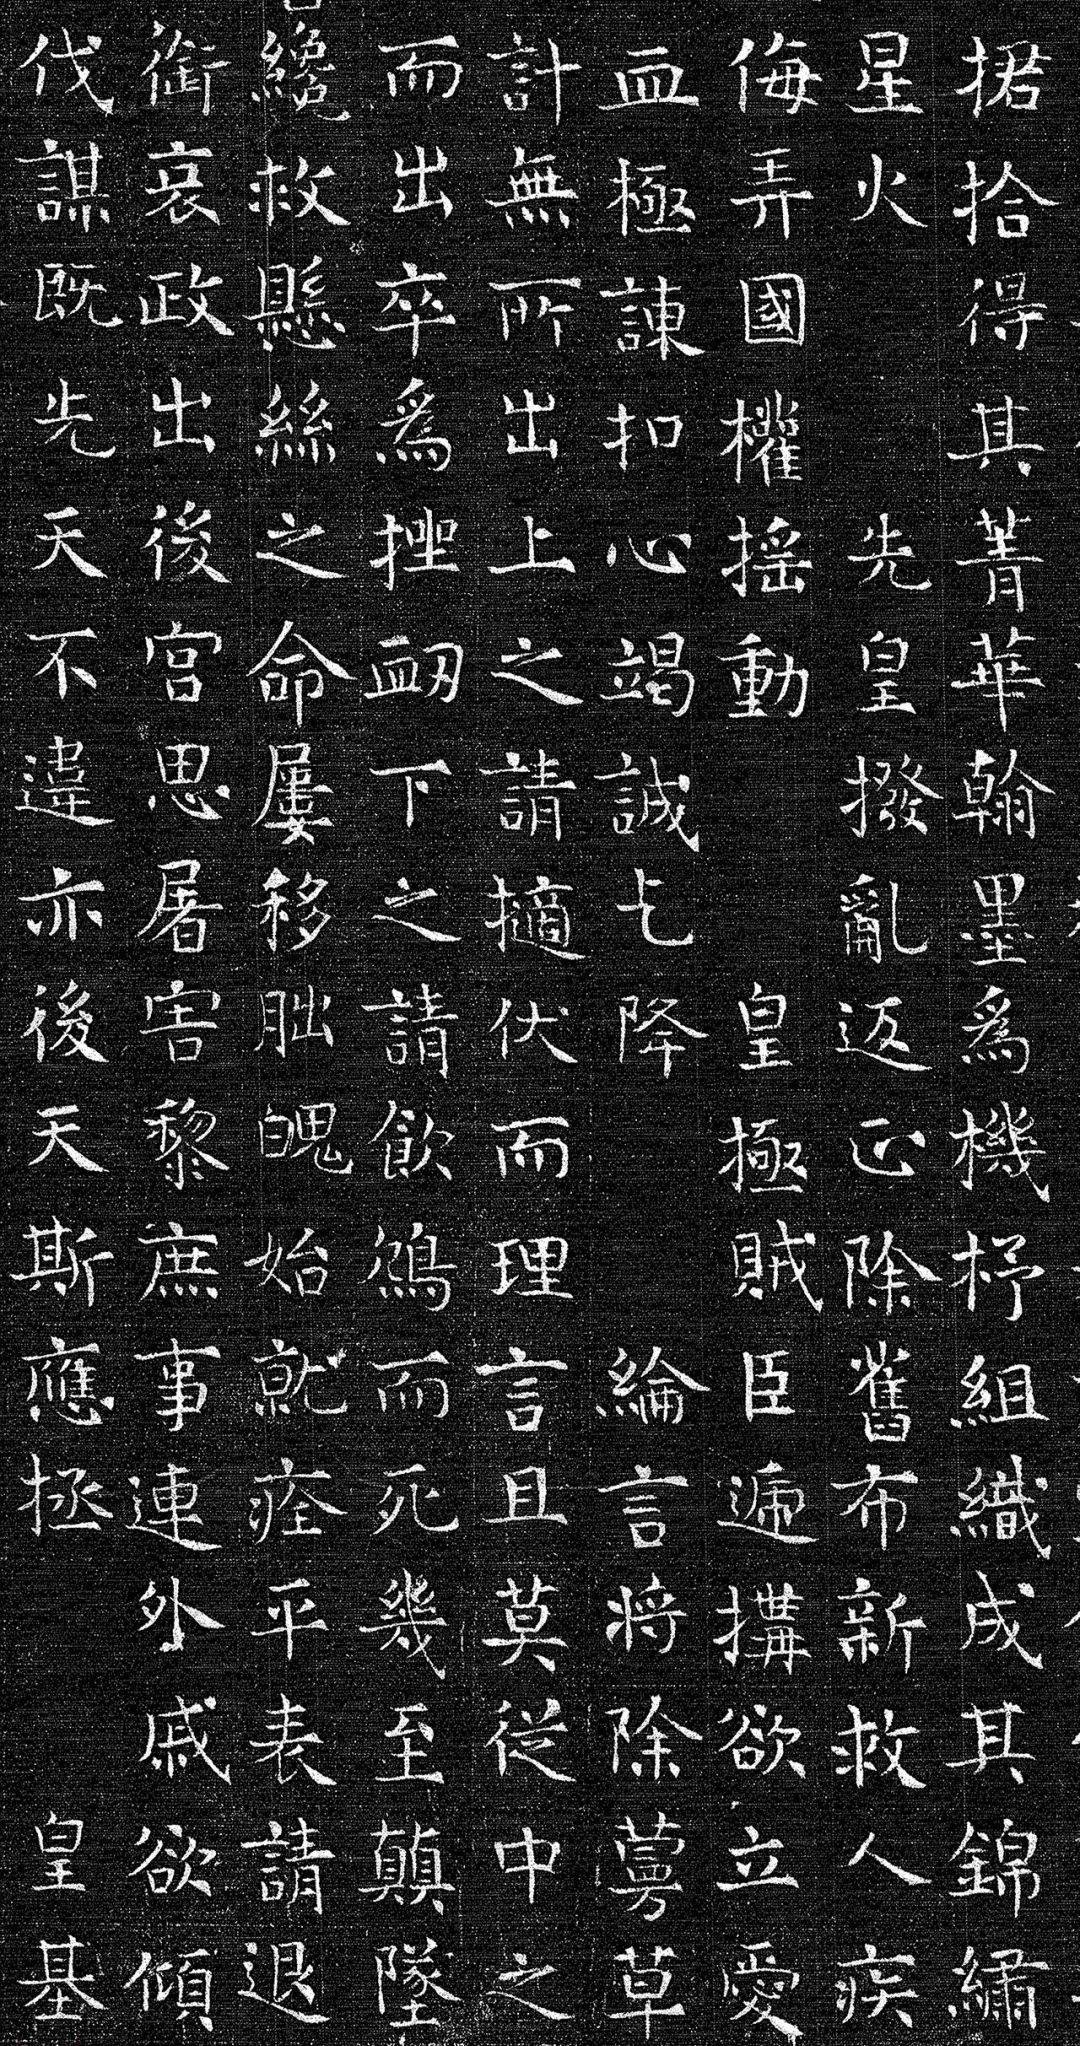 捃拾得其菁華翰墨爲機杼組織成其錦繡
星火先皇撥亂返正除舊布新救人疾
侮弄國權搖動皇極賊臣遞搆欲立愛
血極諫扣心竭誠乞降綸言將除蔓草
計無所出上之請擿伏而理言且莫從中之
而出卒爲挫衂下之請飲鴆而死幾至顛墜
纔救懸絲之命屢移朏魄始就痊平表請退
銜哀政出後宮思屠害黎庶事連外戚欲傾
伐謀既先天不違亦後天斯應拯皇基